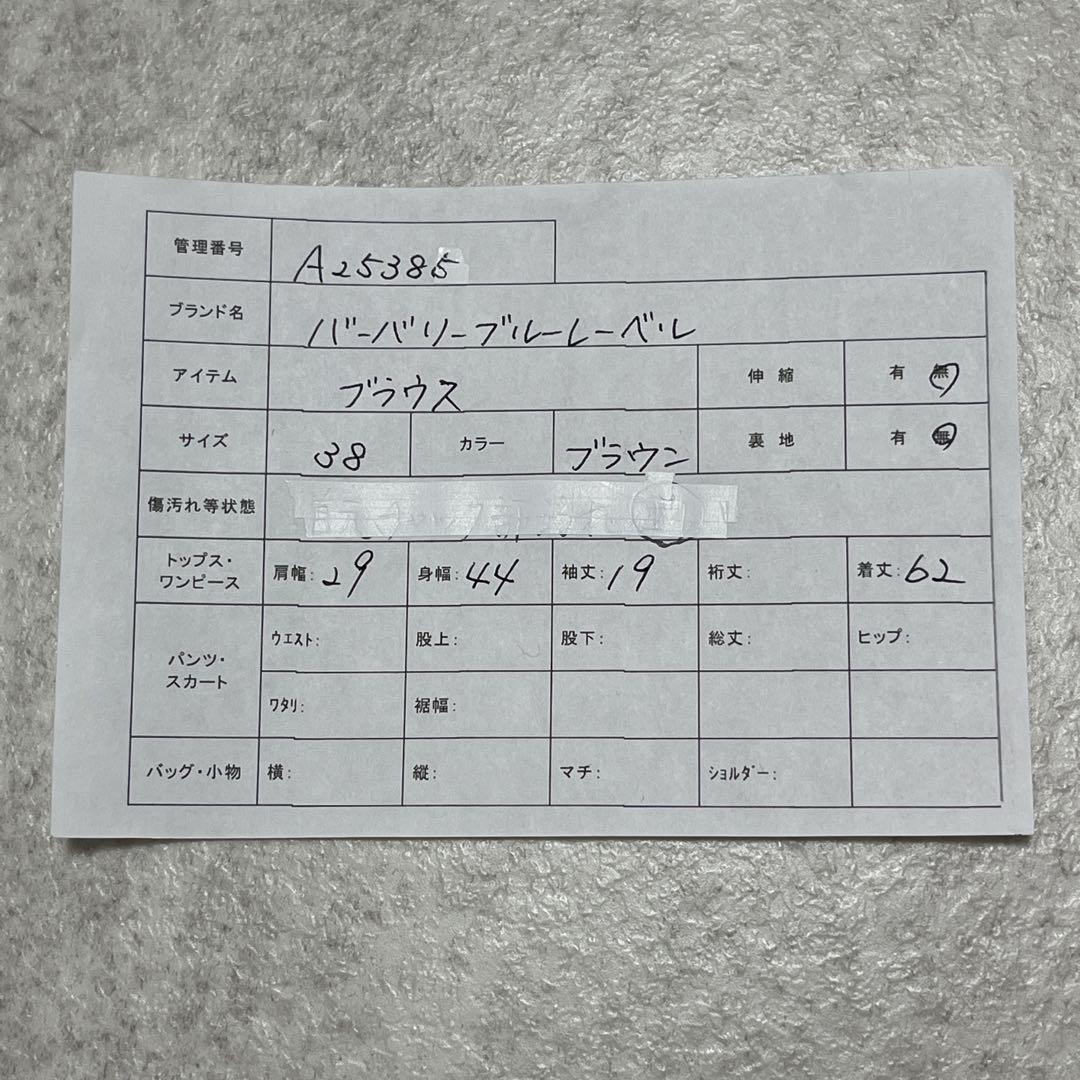 管理番号 A25385
ブランド名 バーバリーブルーレーベル
アイテム ブラウス 伸縮 有 無
サイズ 38 カラー ブラウン 裏地 有 無
傷汚れ等状態
トップス・ワンピース 肩幅:29 身幅:44 袖丈:19 裄丈: 着丈:62
パンツ・スカート ウエスト: 股上: 股下: 総丈: ヒップ:
ワタリ: 裾幅:
バッグ・小物 横: 縦: マチ: ショルダー: